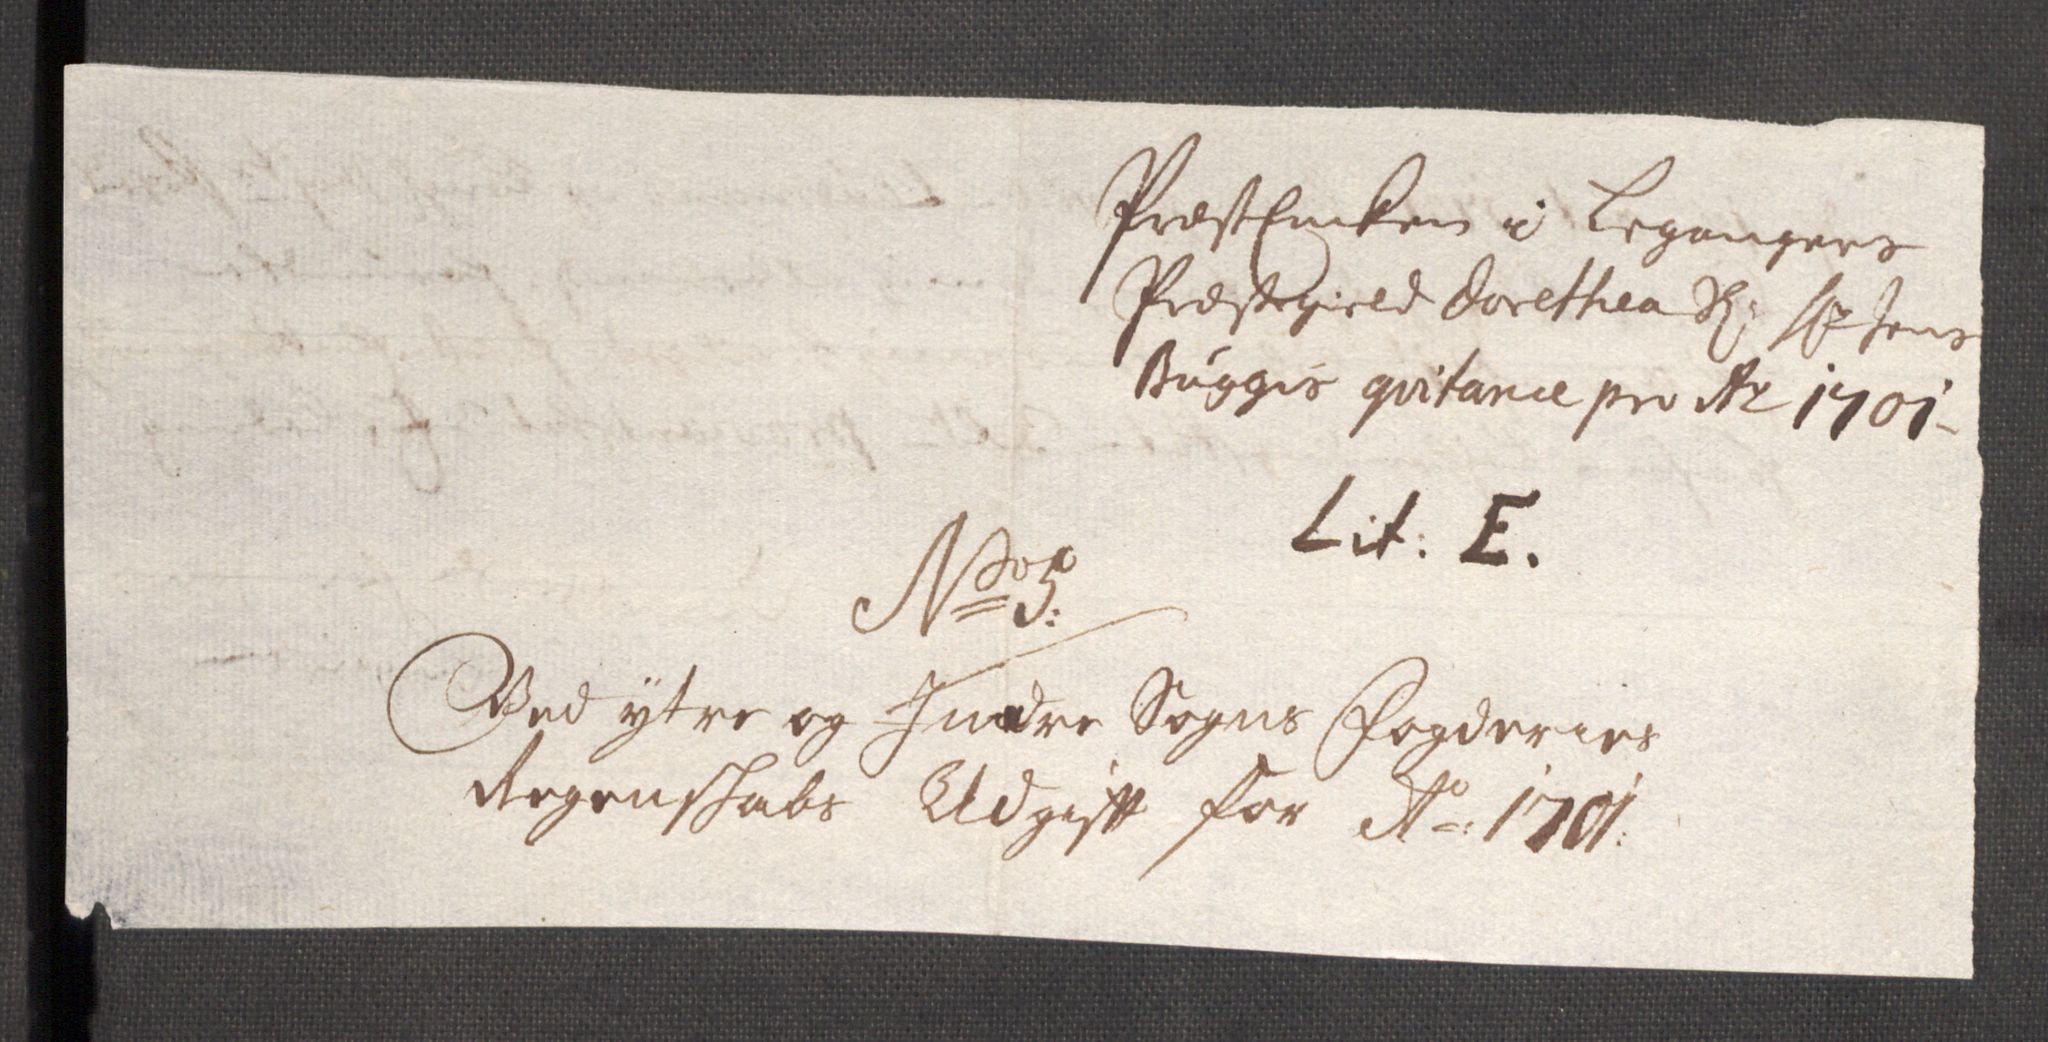 PræstEnken i Legangers
Præstegield Dorethea Sl: Hr Jens
Búggis qvitance pro Ao 1701
Lit: E.
No 5:
Ved ÿtre og Indre Sogns Fogderies
Regenskabs Udgift for Ao: 1701: